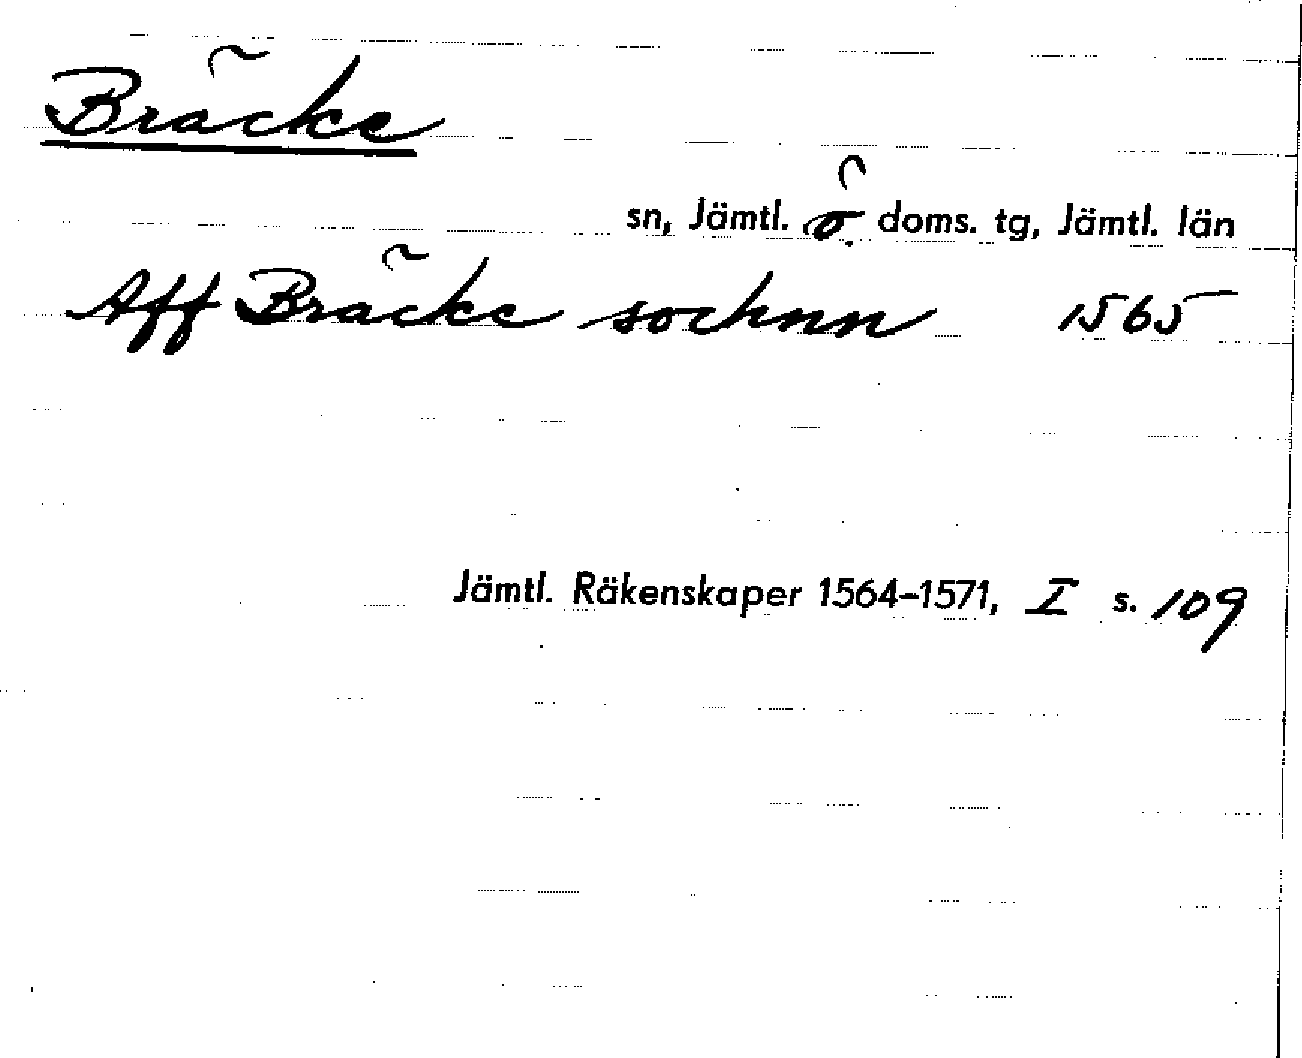 Bräcke
sn, Jämtl. ö. doms. tg, Jämtl. län
Aff Bräcke sochnn 1565
Jämtl. Räkenskaper 1564-1571, I s. 109